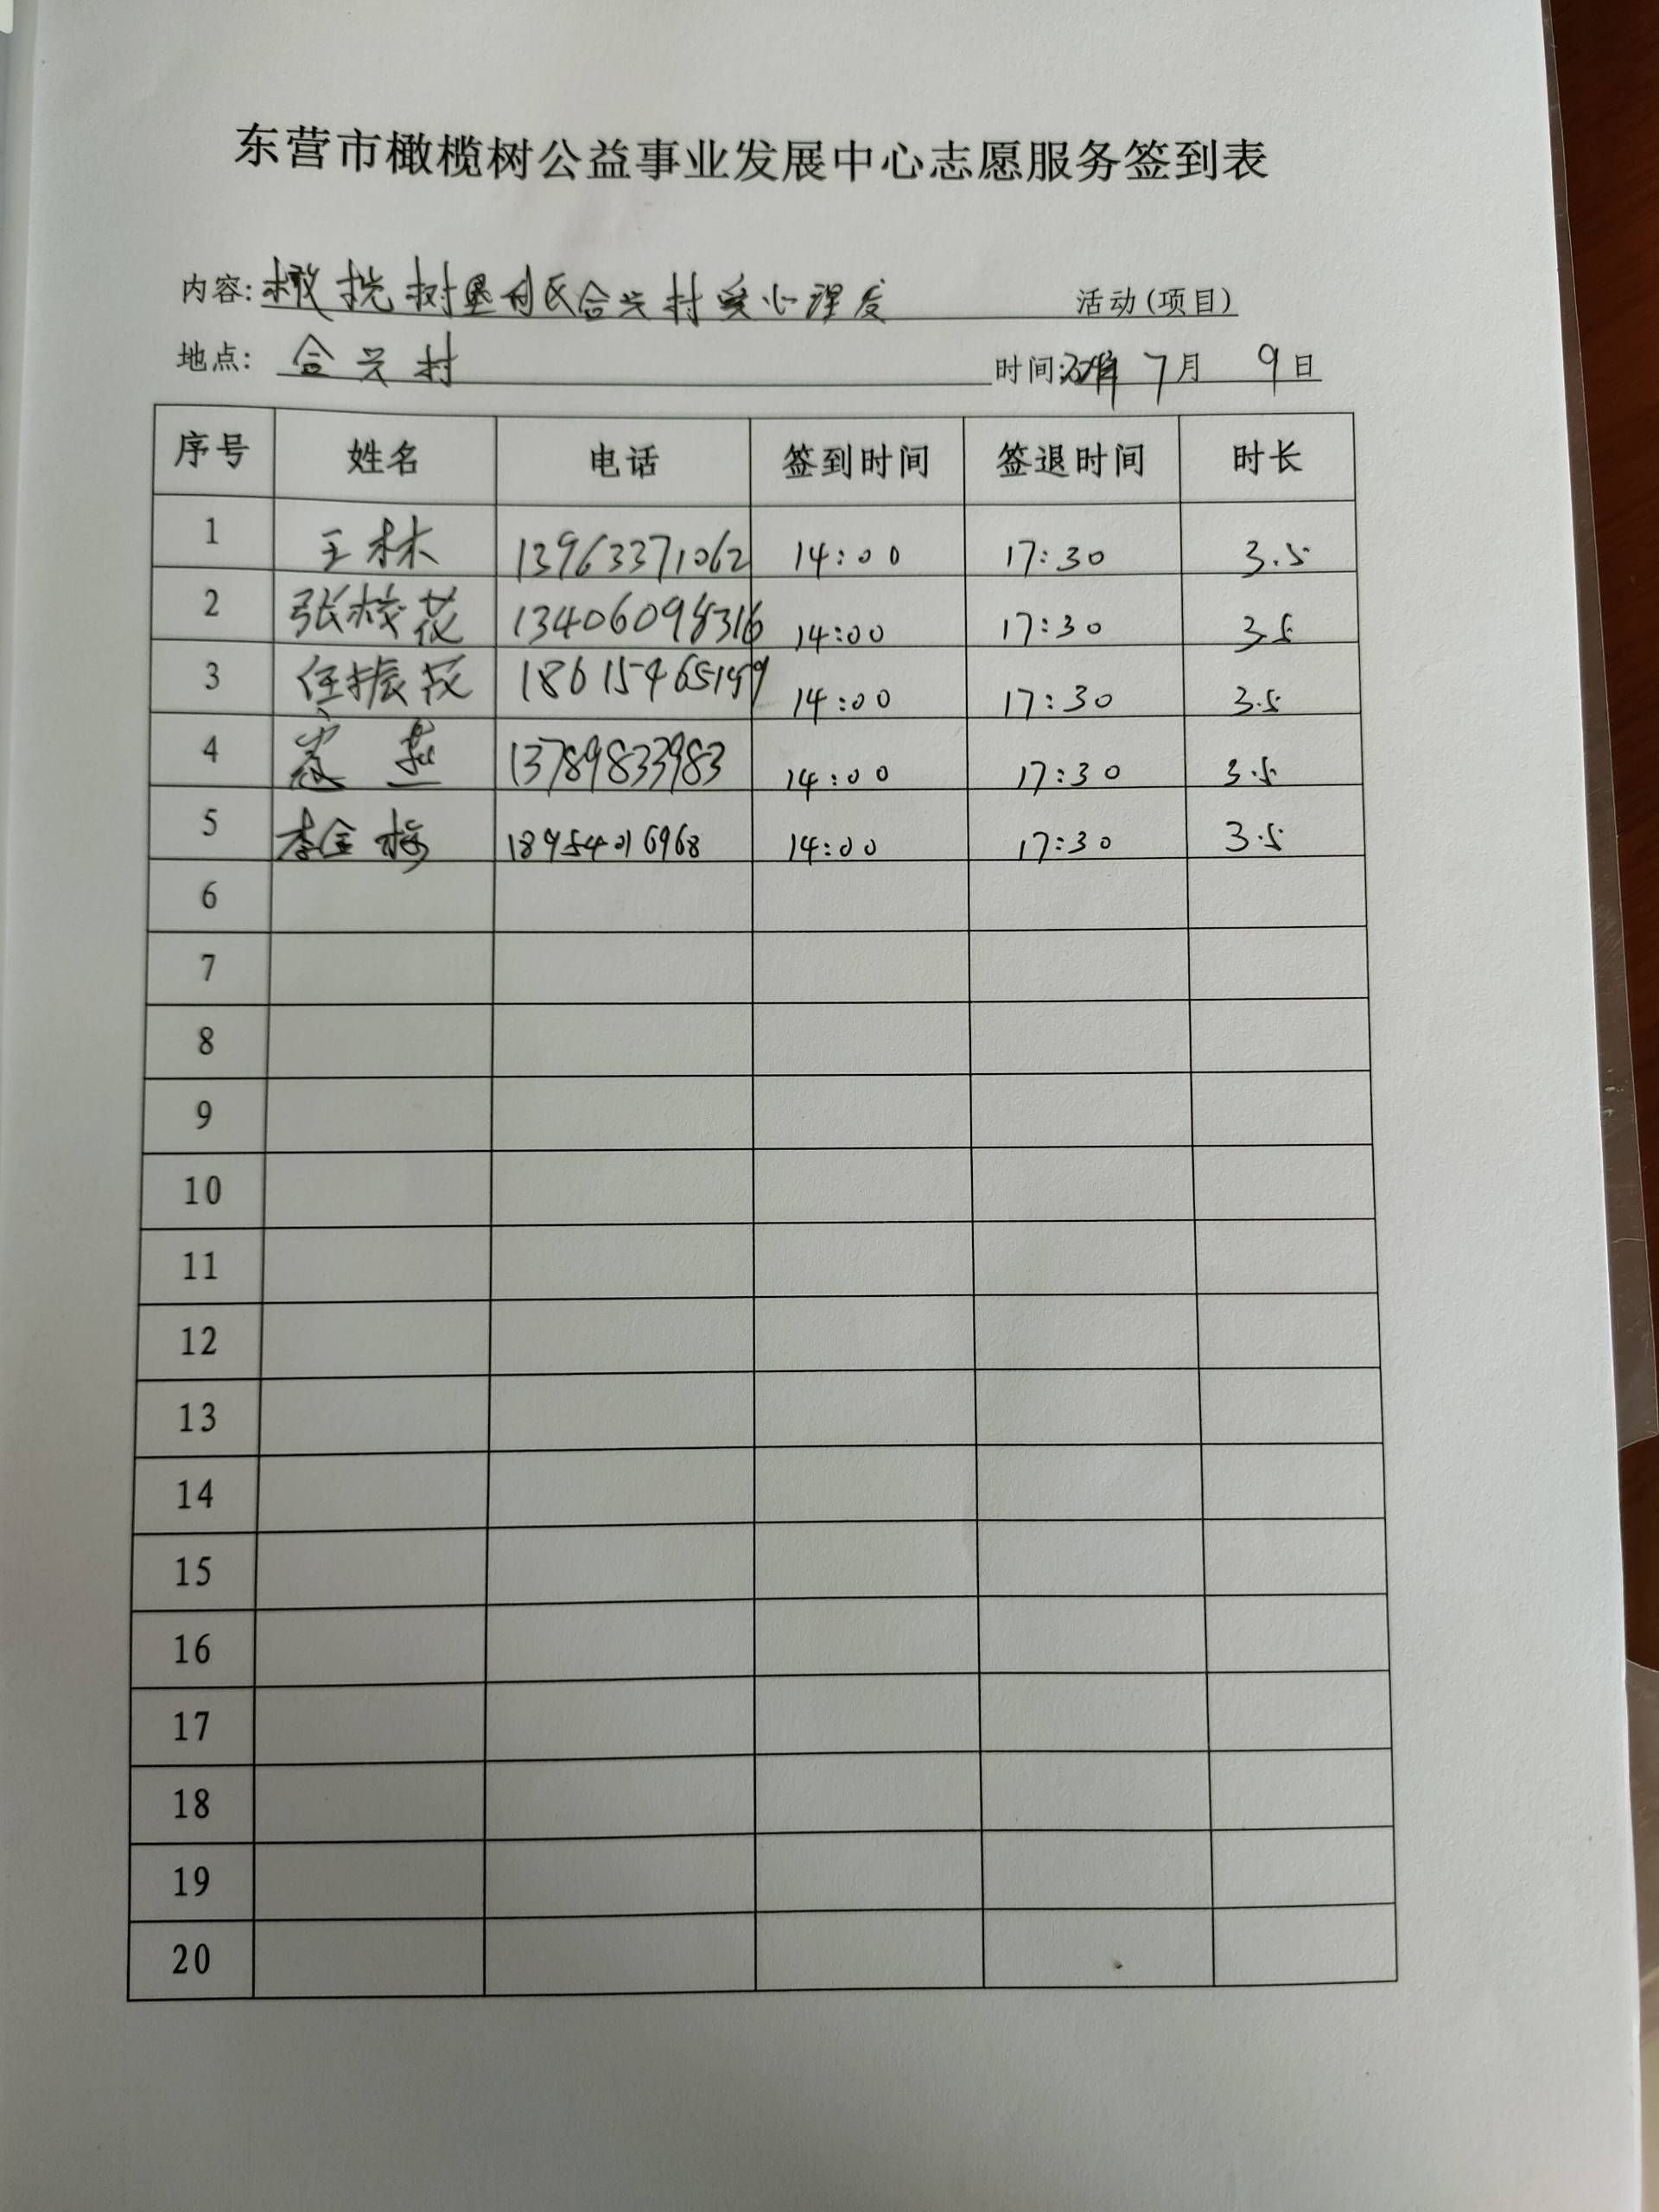 东营市橄榄树公益事业发展中心志愿服务签到表
内容:橄榄树垦利区合兴村爱心理发 活动(项目)
地点: 合兴村 时间: 7月 9日
序号 姓名 电话 签到时间 签退时间 时长
1 王林 13963371062 14:00 17:30 3.5
2 张校花 13406098316 14:00 17:30 3.5
3 任振花 14:00 17:30 3.5
4 燕 13789833983 14:00 17:30 3.5
5 李金梅 14:00 17:30 3.5
6
7
8
9
10
11
12
13
14
15
16
17
18
19
20